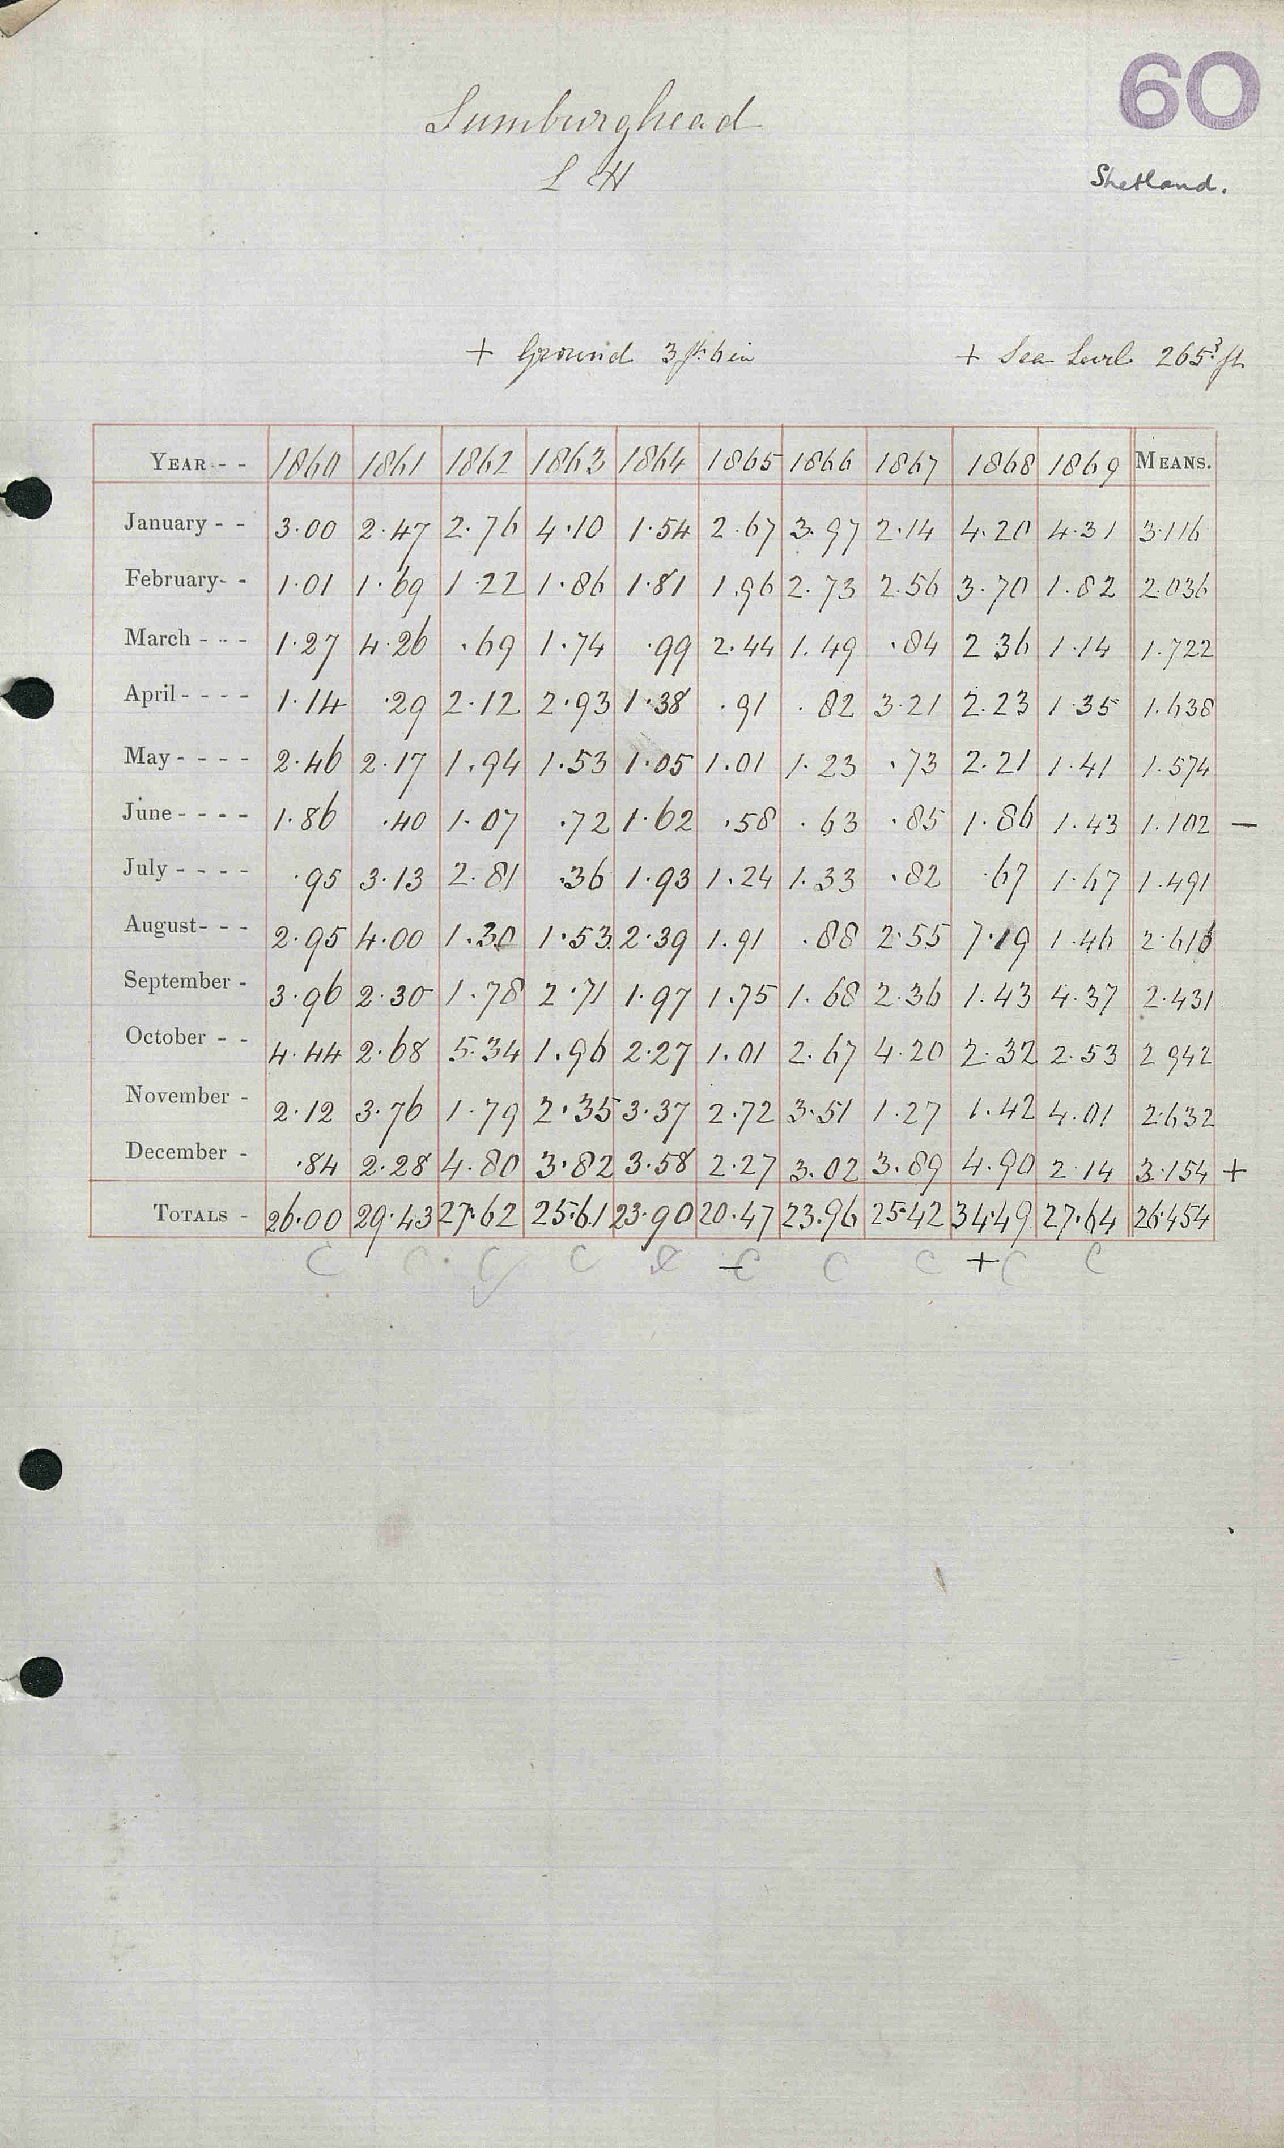 60
Sumburghead
L H
Shetland.
+ Ground 3 ft. 6 in + Sea Level 265.3 ft
YEAR - - 1860 1861 1862 1863 1864 1865 1866 1867 1868 1869 MEANS.
January - - 3.00 2.47 2.76 4.10 1.54 2.67 3.97 2.14 4.20 4.31 3.116
February- - 1.01 1.69 1.22 1.86 1.81 1.96 2.73 2.56 3.70 1.82 2.036
March - - - 1.27 4.26 .69 1.74 .99 2.44 1.49 .84 2.36 1.14 1.722
April - - - - 1.14 .29 2.12 2.93 1.38 .91 .82 3.21 2.23 1.35 1.638
May - - - - 2.46 2.17 1.94 1.53 1.05 1.01 1.23 .73 2.21 1.41 1.574
June - - - - 1.86 .40 1.07 .72 1.62 .58 .63 .85 1.86 1.43 1.102 —
July - - - - .95 3.13 2.81 .36 1.93 1.24 1.33 .82 .67 1.67 1.491
August- - - 2.95 4.00 1.30 1.53 2.39 1.91 .88 2.55 7.19 1.46 2.616
September - 3.96 2.30 1.78 2.71 1.97 1.75 1.68 2.36 1.43 4.37 2.431
October - - 4.44 2.68 5.34 1.96 2.27 1.01 2.67 4.20 2.32 2.53 2.942
November - 2.12 3.76 1.79 2.35 3.37 2.72 3.51 1.27 1.42 4.01 2.632
December - .84 2.28 4.80 3.82 3.58 2.27 3.02 3.89 4.90 2.14 3.154 +
TOTALS - 26.00 29.43 27.62 25.61 23.90 20.47 23.96 25.42 34.49 27.64 26.454
C C C C C — C C C + C C